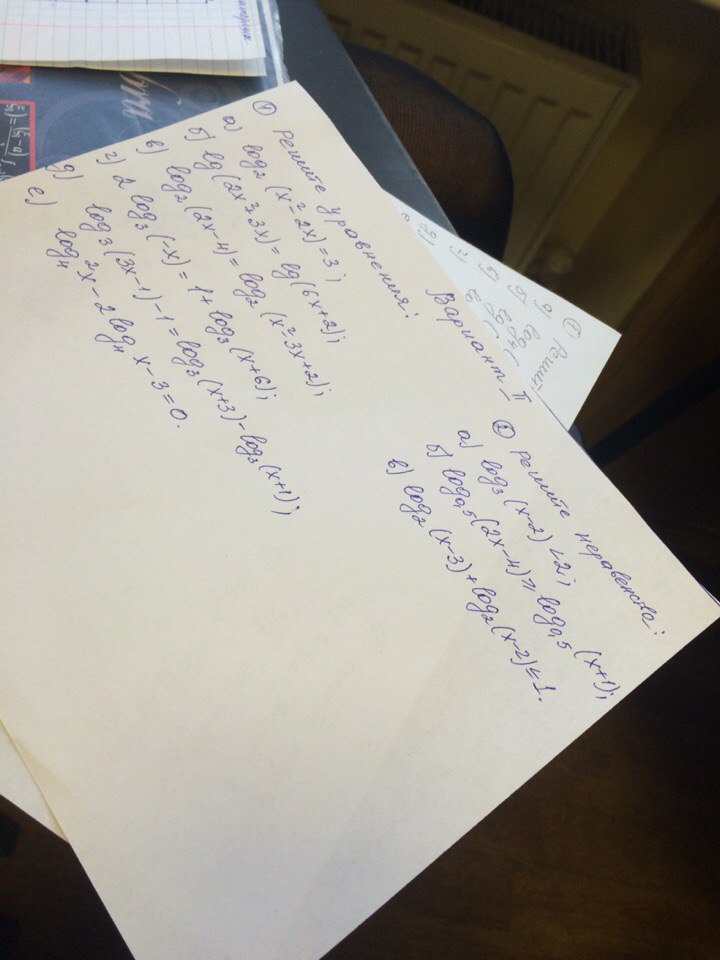 Вариант II
① Решите уравнения:
а) log₂ (x² - 2x) = 3;
б) lg (2x² + 3x) = lg (6x + 2);
в) log₂ (2x - 4) = log₂ (x² - 3x + 2);
г) 2 log₃ (-x) = 1 + log₃ (x + 6);
д) log₃ (3x - 1) - 1 = log₃ (x + 3) - log₃ (x + 1);
е) log₄² x - 2 log₄ x - 3 = 0.
② Решите неравенства:
а) log₃ (x - 2) < 2;
б) log₀,₅ (2x - 4) ≥ log₀,₅ (x + 1);
в) log₂ (x - 3) + log₂ (x - 2) ≤ 1.
① Решит
а) log₄ (